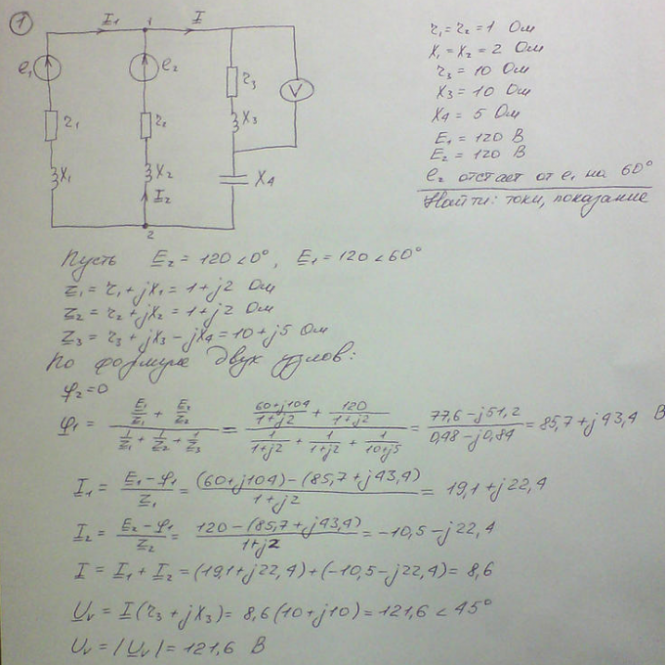 1
I₁ 1 I
e₁ e₂ r₃ V
r₁ r₂ X₃
X₁ X₂ X₄
I₂
2
r₁ = r₂ = 1 Ом
X₁ = X₂ = 2 Ом
r₃ = 10 Ом
X₃ = 10 Ом
X₄ = 5 Ом
E₁ = 120 В
E₂ = 120 В
e₂ отстает от e₁ на 60°
Найти: токи, показание
Пусть E₂ = 120∠0°, E₁ = 120∠60°
Z₁ = r₁ + jX₁ = 1 + j2 Ом
Z₂ = r₂ + jX₂ = 1 + j2 Ом
Z₃ = r₃ + jX₃ − jX₄ = 10 + j5 Ом
По формуле двух узлов:
φ₂ = 0
φ₁ = (E₁/Z₁ + E₂/Z₂)/(1/Z₁ + 1/Z₂ + 1/Z₃) = ((60+j104)/(1+j2) + 120/(1+j2))/(1/(1+j2) + 1/(1+j2) + 1/(10+j5)) = (77,6 − j51,2)/(0,48 − j0,84) = 85,7 + j43,4 В
I₁ = (E₁ − φ₁)/Z₁ = ((60 + j104) − (85,7 + j43,4))/(1 + j2) = 19,1 + j22,4
I₂ = (E₂ − φ₁)/Z₂ = (120 − (85,7 + j43,4))/(1 + j2) = −10,5 − j22,4
I = I₁ + I₂ = (19,1 + j22,4) + (−10,5 − j22,4) = 8,6
Uᵥ = I(r₃ + jX₃) = 8,6(10 + j10) = 121,6∠45°
Uᵥ = |Uᵥ| = 121,6 В